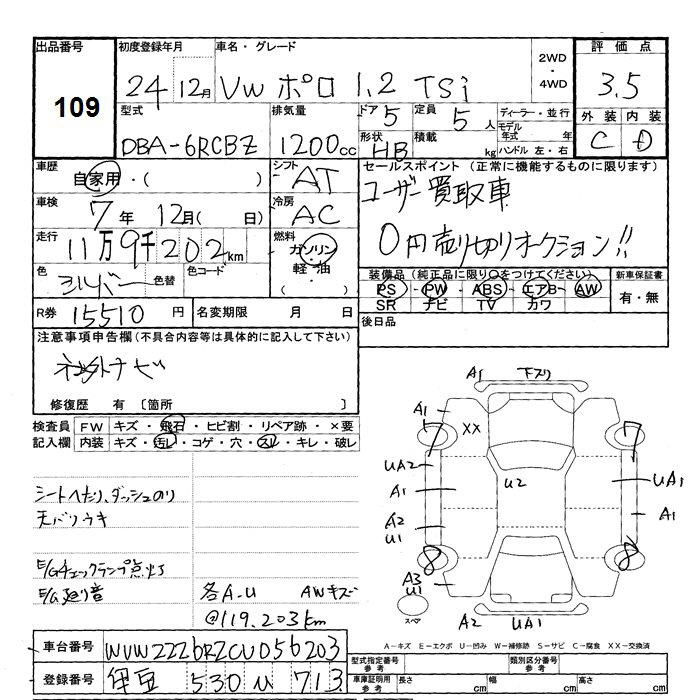 出品番号 109
初度登録年月 24 12月
車名・グレード VW ポロ 1.2 TSi
2WD・4WD
評価点 3.5
型式 DBA-6RCBZ
排気量 1200cc
ドア 5
定員 5人
形状 HB
積載 kg
ディーラー・並行
モデル年式 年
ハンドル 左・右
外装 内装
C D
車歴 自家用・( )
シフト AT
セールスポイント (正常に機能するものに限ります)
ユーザー買取車
0円売り切りオークション!!
車検 7年 12月( 日)
冷房 AC
走行 11万9千202km
燃料 ガソリン・軽油・( )
色 シルバー 色替 色コード
装備品 (純正品に限り○をつけてください)
PS・PW・ABS・エアB・AW
SR ナビ TV カワ
新車保証書 有・無
R券 15510円
名変期限 月 日
後日品
注意事項申告欄(不具合内容等は具体的に記入して下さい)
社外ナビ
修復歴 有 〔箇所 〕
検査員記入欄
FW キズ・飛石・ヒビ割・リペア跡・×要
内装 キズ・汚レ・コゲ・穴・スレ・キレ・破レ
シートヘたり、ダッシュのり
天バリウキ
E/Gチェックランプ点灯
E/G廻り音
各A-U AWキズ
@119,203km
A1 下スリ
A1
XX
7 7
UA2
A1
U2
UA1
A1
A2
U1
8 8
A3
U1
スペア
A2 UA1
A-キズ E-エクボ U-凹み W-補修跡 S-サビ C-腐食 XX-交換済
車台番号 WVWZZZ6RZCU056203
登録番号 伊豆 530 ま 713
型式指定番号 参考
類別区分番号 参考
車庫証明用 参考 長さ cm 幅 cm 高さ cm